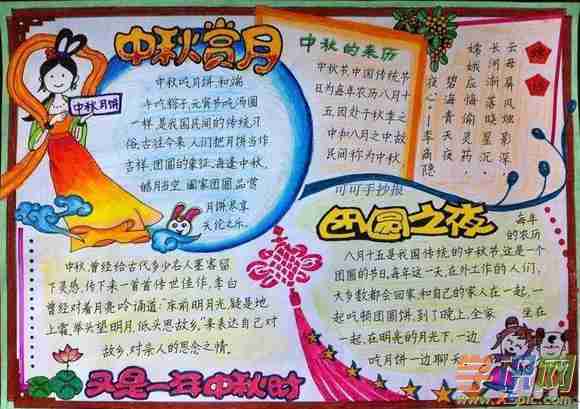 中秋赏月
中秋月饼
中秋吃月饼,和端
午吃粽子,元宵节吃汤圆
一样,是我国民间的传统习
俗.古往今来,人们把月饼当作
吉祥、团圆的象征,每逢中秋,
皓月当空,阖家团圆,品尝
月饼,尽享
天伦之乐。
中秋的来历
中秋节,中国传统节
日,为每年农历八月十
五,因处于秋季之
中和八月之中,故
民间称为中秋.
可可手抄报
云母屏风烛影深,
长河渐落晓星沉,
嫦娥应悔偷灵药,
碧海青天夜
夜心.——李商隐
中秋,曾经给古代多少名人墨客留
下灵感,传下来一首首传世佳作,李白
曾经对着月亮吟诵道:"床前明月光,疑是地
上霜,举头望明月,低头思故乡。"来表达自己对
故乡,对亲人的思念之情。
团圆之夜
每年
的农历
八月十五是我国传统的中秋节,这是一个
团圆的节日,每年这一天,在外工作的人们,
大多数都会回家,和自己的家人在一起,一
起吃顿团圆饼,到了晚上,全家
坐在
一起,在明亮的月光下,一边
吃月饼一边聊天
又是一年中秋时
学科网